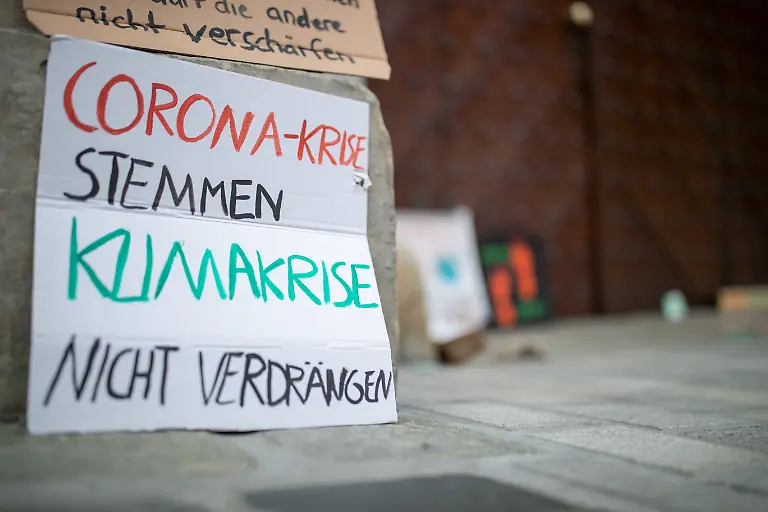 die andere
nicht verschärfen
CORONA-KRISE
STEMMEN
KLIMAKRISE
NICHT VERDRÄNGEN